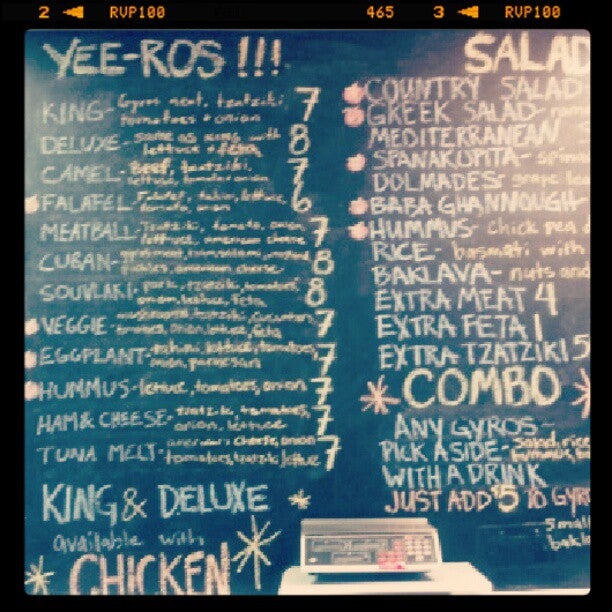 2 RVP100 465 3 RVP100
YEE-ROS !!!
KING- Gyros meat, tzatziki, tomatoes + onion 7
DELUXE- same as king with lettuce + feta 8
CAMEL- Beef, tzatziki, lettuce, tomato + onion 7
FALAFEL- lettuce, tomato, onion 6
MEATBALL- tzatziki, tomato, onion, lettuce, american cheese 7
CUBAN- pickles, american cheese 8
SOUVLAKI- pork, tzatziki, tomatoes, onion, lettuce, feta 8
VEGGIE- onion, lettuce, feta 7
EGGPLANT- lettuce, tomatoes, onion, parmesan 7
HUMMUS- lettuce, tomatoes, onion 7
HAM & CHEESE- tzatziki, tomatoes, onion, lettuce 7
TUNA MELT- american cheese, onion, tomatoes, tzatziki, lettuce 7
KING & DELUXE *
available with
* CHICKEN *
SALAD
COUNTRY SALAD
GREEK SALAD-
MEDITERRANEAN
SPANAKOPITA-
DOLMADES-
BABA GHANNOUGH-
HUMMUS- chick pea
RICE- basmati with
BAKLAVA- nuts and
EXTRA MEAT 4
EXTRA FETA 1
EXTRA TZATZIKI
* COMBO *
ANY GYROS-
PICK A SIDE- salad, rice
WITH A DRINK
JUST ADD $5 TO GYRO
small